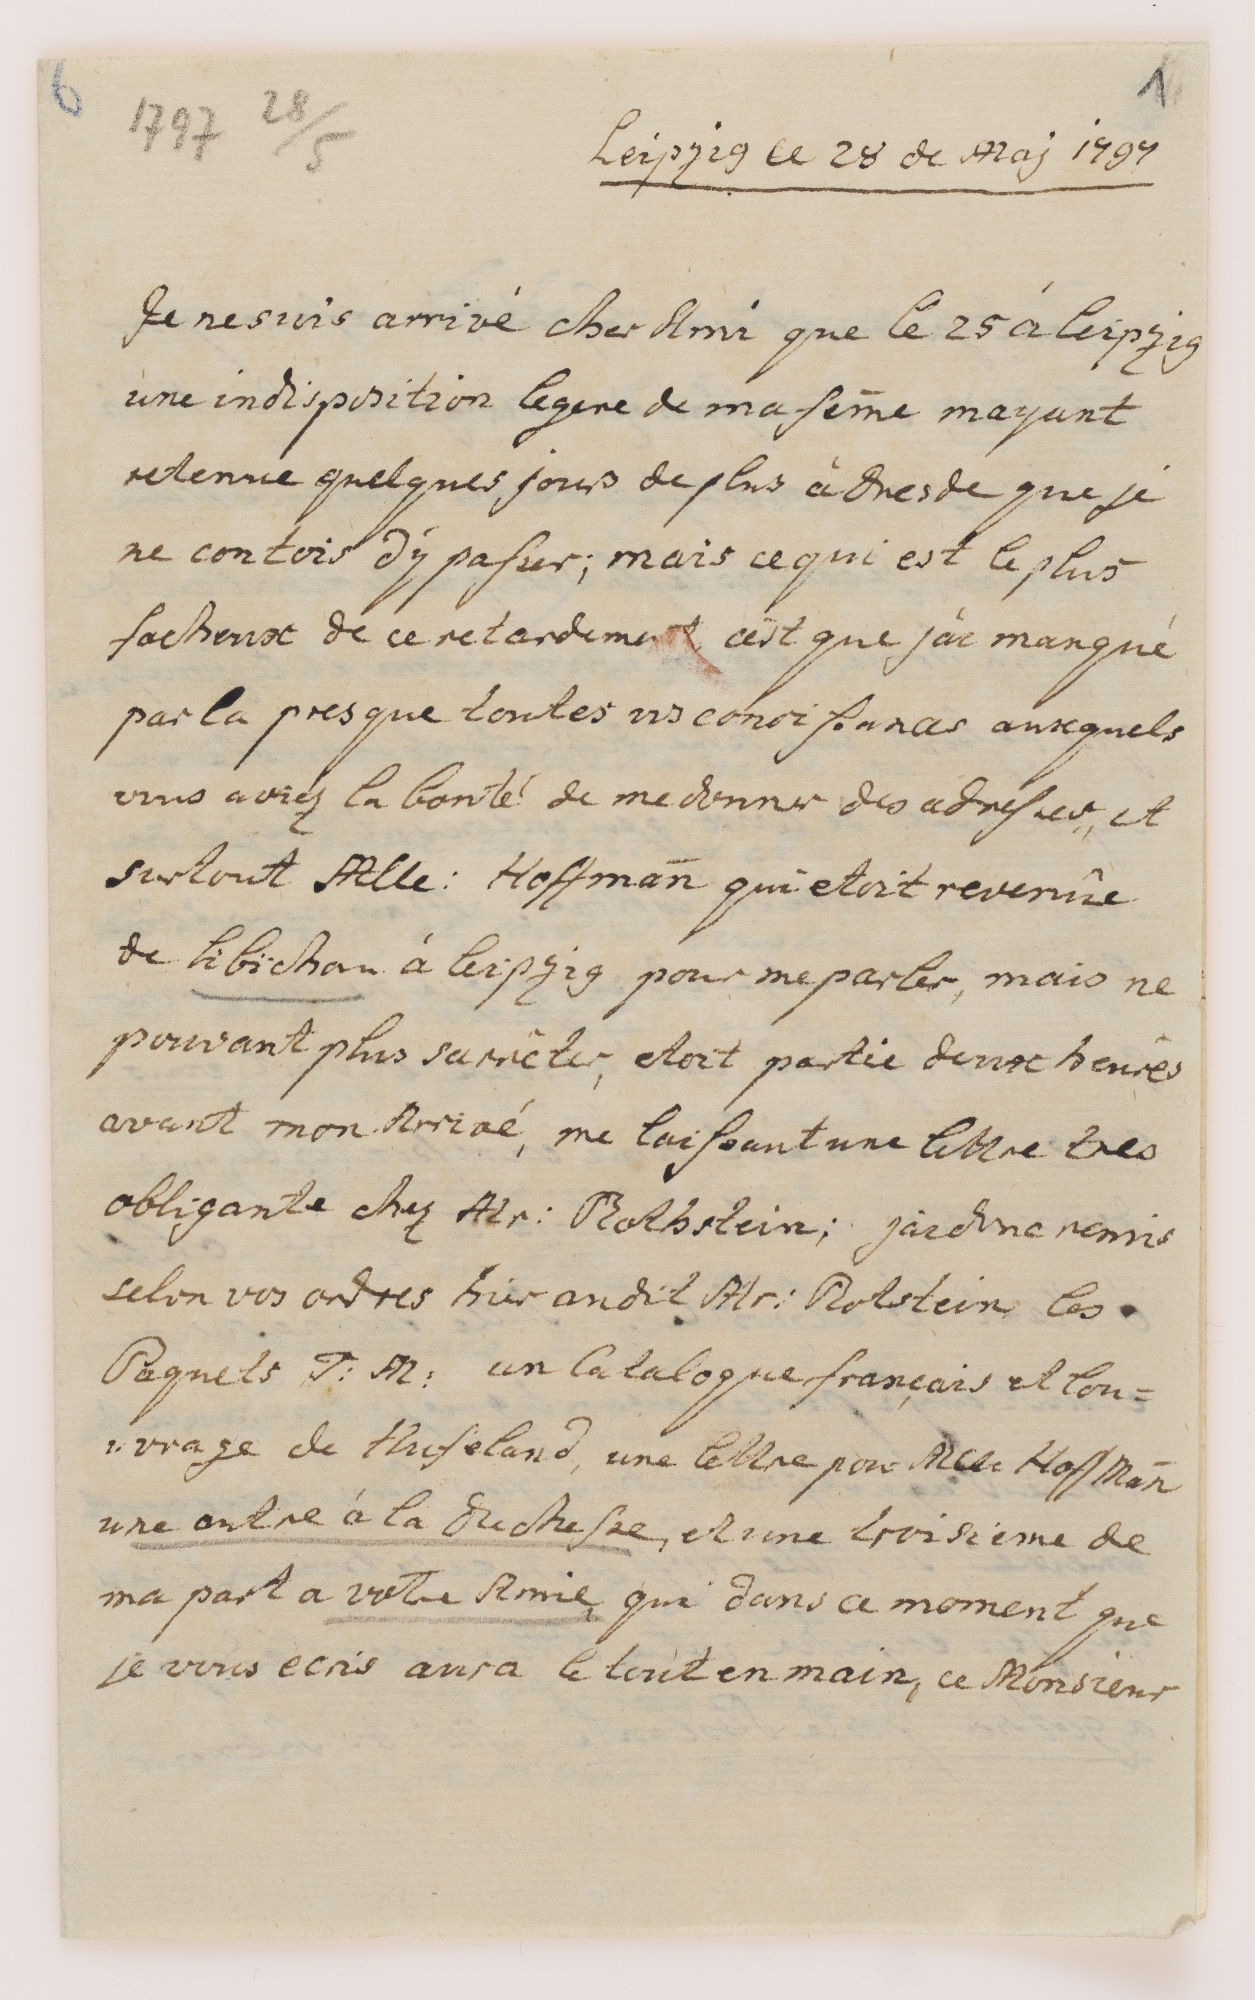 6
1
1797 28/5
Leipzig ce 28 de Maj 1797
Je ne suis arrivé cher Ami que le 25 á Leipzig
une indisposition legere de ma fem̄e mayant
retenue quelques jours de plus à Dresde que je
ne contois d'ÿ passer; mais ce qui est le plus
facheux de ce retardement cest que j'ai manqué
par la presque toutes vos conoissances auxquels
vous aviez la bonté de me donner des adresses, et
surtout Melle: Hoffman̄ qui etoit revenue
de Libichau á Leipzig pour me parler, mais ne
pouvant plus sarrêter, etoit partie deux heures
avant mon Arrivé, me laissant une lettre tres
obligante chez Mr: Rothstein; jai donc remis
selon vos ordres hier audit Mr: Rotstein les
Paquets T: M: un Catalogue français et lou=
uvrage de Hufeland, une lettre pour Melle Hoffman̄
une autre á la Duchesse, et une troisieme de
ma part a votre Amie, qui dans ce moment que
je vous ecris aura le tout en main, ce Monsieur